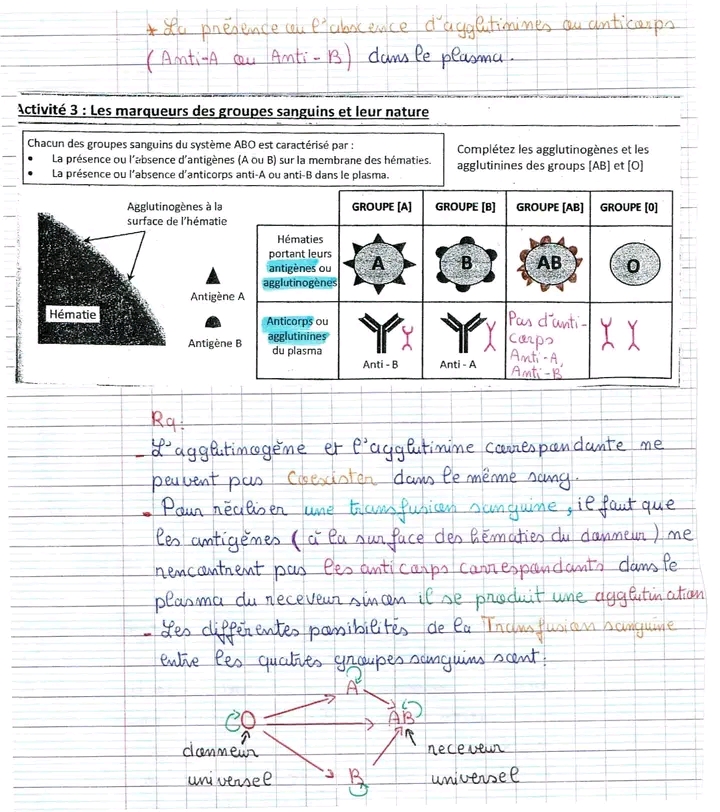 * La présence ou l'abscence d'agglutinines ou anticorps
(Anti-A ou Anti-B) dans le plasma.
Activité 3 : Les marqueurs des groupes sanguins et leur nature
Chacun des groupes sanguins du système ABO est caractérisé par :
• La présence ou l'absence d'antigènes (A ou B) sur la membrane des hématies.
• La présence ou l'absence d'anticorps anti-A ou anti-B dans le plasma.
Complétez les agglutinogènes et les
agglutinines des groups [AB] et [O]
Agglutinogènes à la
surface de l'hématie
Hématie
Antigène A
Antigène B
GROUPE [A] GROUPE [B] GROUPE [AB] GROUPE [0]
Hématies
portant leurs
antigènes ou
agglutinogènes
A B AB O
Anticorps ou
agglutinines
du plasma
Anti - B
Anti - A
Pas d'anti-
corps
Anti-A,
Anti-B
Rq:
- L'agglutinogène et l'agglutinine correspondante ne
peuvent pas Coexister dans le même sang.
• Pour réaliser une transfusion sanguine, il faut que
les antigènes (à la surface des hématies du donneur) ne
rencontrent pas les anticorps correspondants dans le
plasma du receveur sinon il se produit une agglutination
- Les différentes possibilités de la Transfusion sanguine
entre les quatres groupes sanguins sont :
A
O AB
donneur
universel
receveur
universel
B